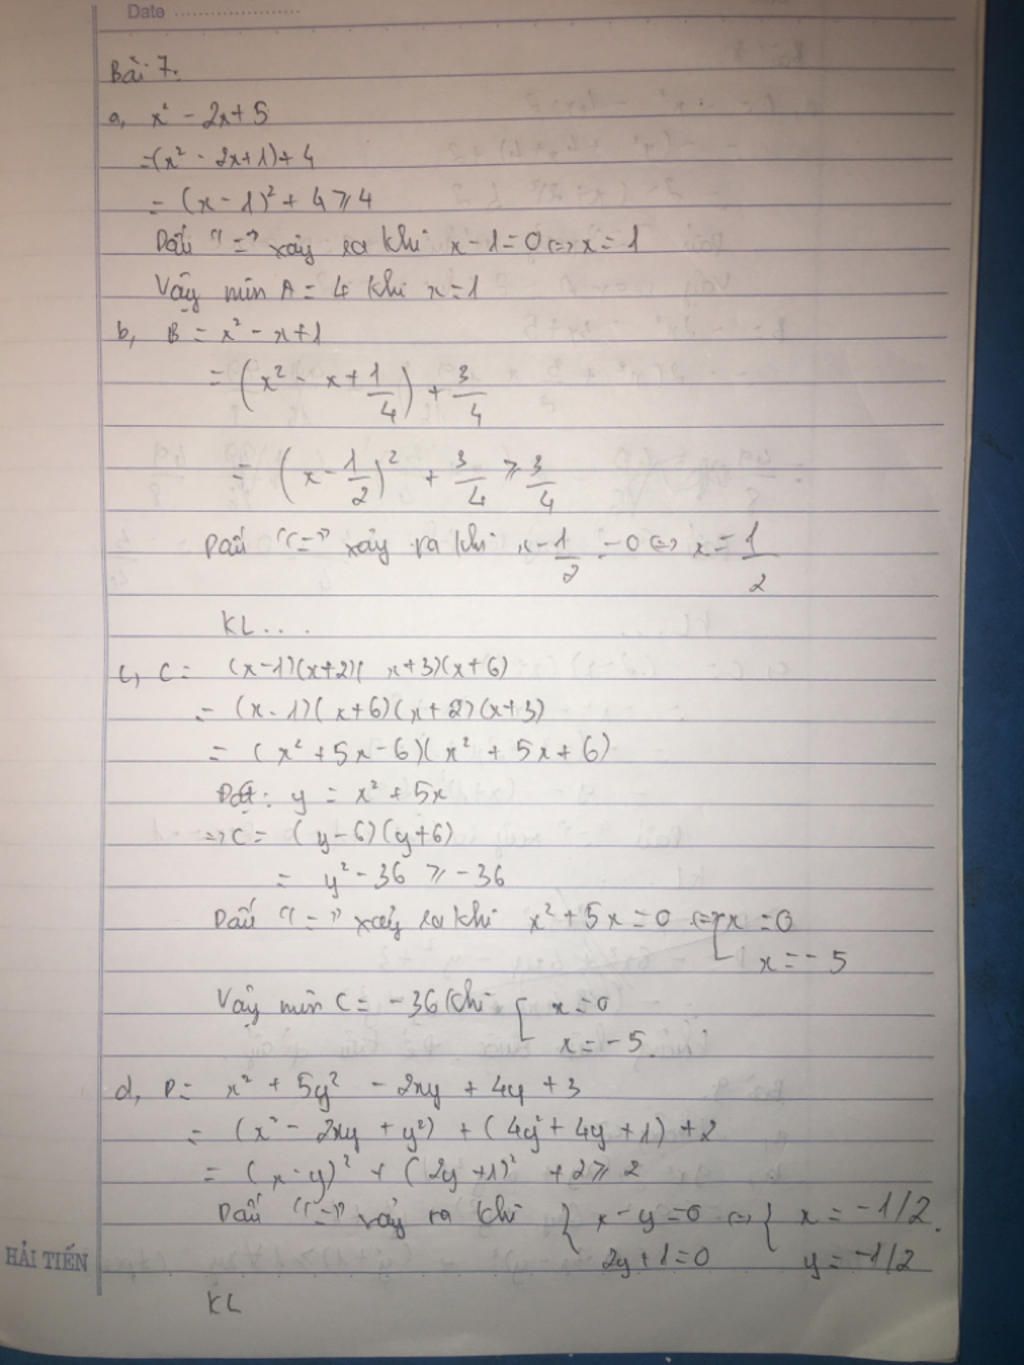 Date
Bài 7.
a, x² - 2x + 5
= (x² - 2x + 1) + 4
= (x - 1)² + 4 ⩾ 4
Dấu "=" xảy ra khi x - 1 = 0 ⇔ x = 1
Vậy min A = 4 khi x = 1
b, B = x² - x + 1
= (x² - x + 1/4) + 3/4
= (x - 1/2)² + 3/4 ⩾ 3/4
Dấu "=" xảy ra khi x - 1/2 = 0 ⇔ x = 1/2
KL...
c, C = (x-1)(x+2)(x+3)(x+6)
= (x-1)(x+6)(x+2)(x+3)
= (x² + 5x - 6)(x² + 5x + 6)
Đặt: y = x² + 5x
⇒ C = (y-6)(y+6)
= y² - 36 ⩾ -36
Dấu "=" xảy ra khi x² + 5x = 0 ⇔ [ x = 0
x = -5
Vậy min C = -36 khi [ x = 0
x = -5.
d, D = x² + 5y² - 2xy + 4y + 3
= (x² - 2xy + y²) + (4y² + 4y + 1) + 2
= (x - y)² + (2y + 1)² + 2 ⩾ 2
Dấu "=" xảy ra khi { x - y = 0 ⇔ { x = -1/2.
2y + 1 = 0 y = -1/2
HẢI TIẾN
KL